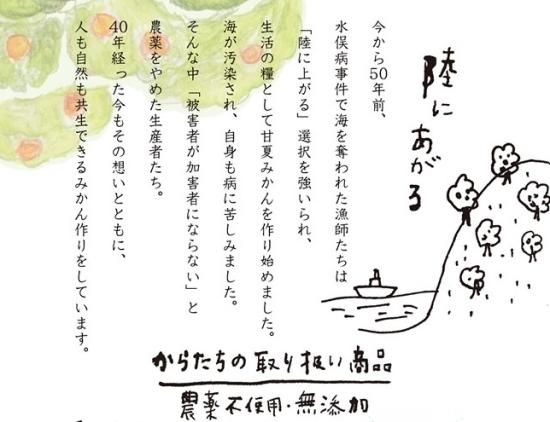 陸に
あがる
今から50年前、
水俣病事件で海を奪われた漁師たちは
「陸に上がる」選択を強いられ、
生活の糧として甘夏みかんを作り始めました。
海が汚染され、自身も病に苦しみました。
そんな中「被害者が加害者にならない」と
農薬をやめた生産者たち。
40年経った今もその想いとともに、
人も自然も共生できるみかん作りをしています。
からたちの取り扱い商品
農薬不使用・無添加